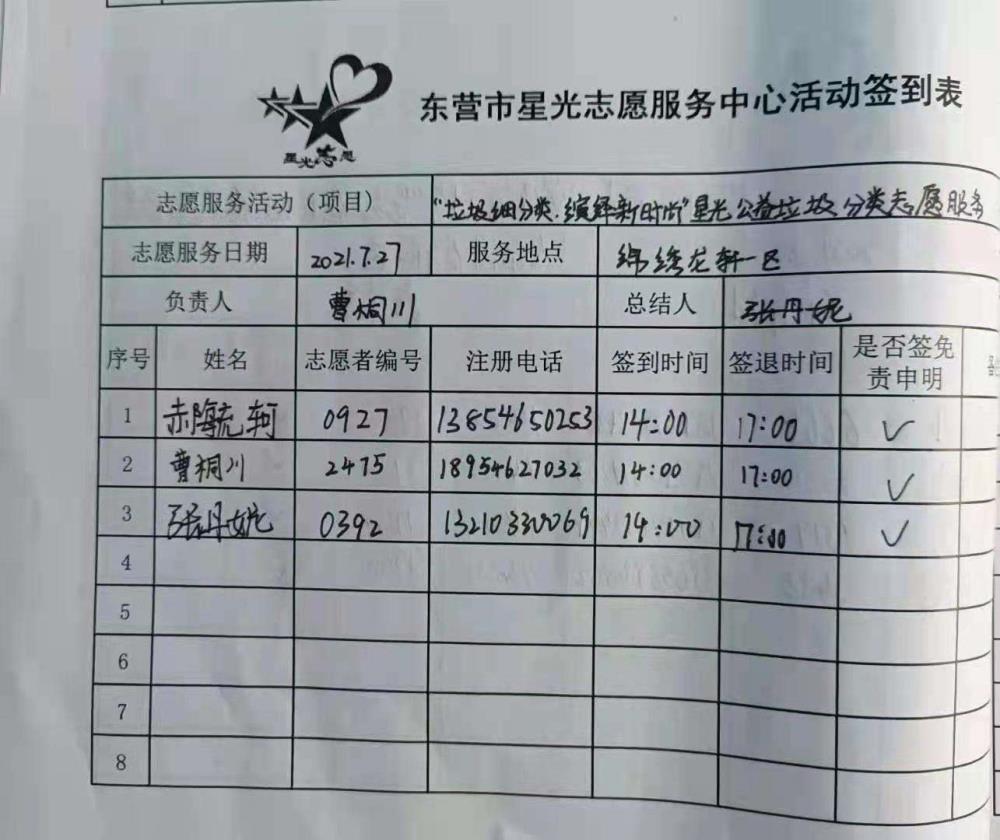 星光志愿
东营市星光志愿服务中心活动签到表
志愿服务活动（项目） "垃圾细分类,缤纷新时尚"星光公益垃圾分类志愿服务
志愿服务日期 2021.7.27 服务地点 锦绣龙轩一区
负责人 曹桐川 总结人 张丹妮
序号 姓名 志愿者编号 注册电话 签到时间 签退时间 是否签免责申明
1 0927 13854650253 14:00 17:00 ✓
2 曹桐川 2475 18954627032 14:00 17:00 ✓
3 张丹妮 0392 13210330069 14:00 17:00 ✓
4
5
6
7
8